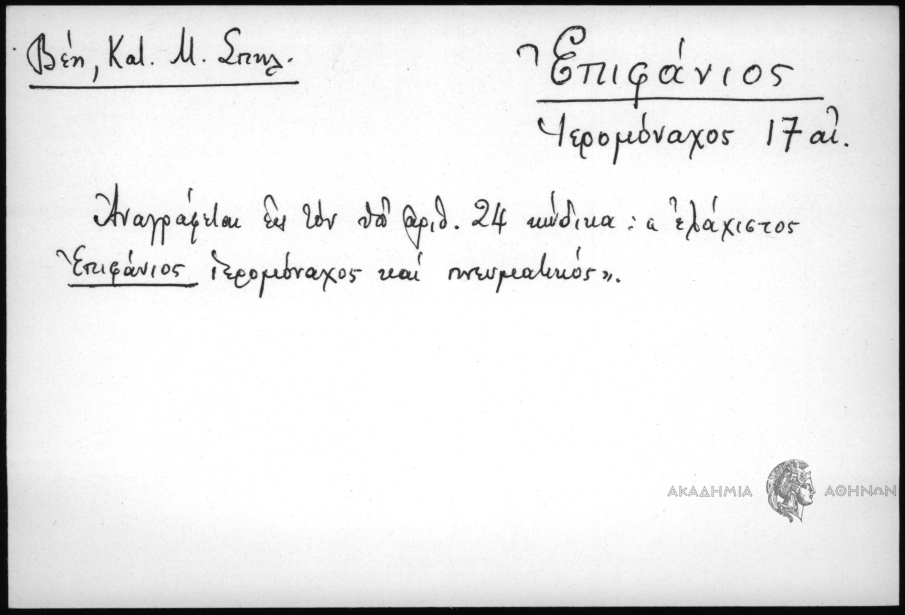 Βέη, Κατ. Μ. Σπηλ.
Ἐπιφάνιος
Ἱερομόναχος 17 αἰ.
Ἀναγράφεται εἰς τὸν ὑπ' ἀριθ. 24 κώδικα: «ἐλάχιστος
Ἐπιφάνιος ἱερομόναχος καὶ πνευματικός».
ΑΚΑΔΗΜΙΑ ΑΘΗΝΩΝ